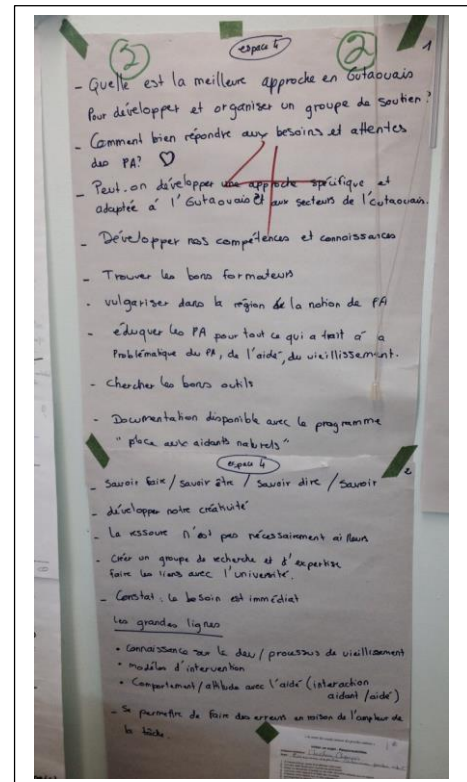 3
espace 4
2
1
- Quelle est la meilleure approche en Outaouais
Pour développer et organiser un groupe de soutien?
- Comment bien répondre aux besoins et attentes
des PA? ♡
- Peut-on développer une approche spécifique et
adaptée à l'Outaouais et aux secteurs de l'Outaouais.
4
- Développer nos compétences et connaissances
- Trouver les bons formateurs
- vulgariser dans la région de la notion de PA
- éduquer les PA pour tout ce qui a trait à a
Problématique du PA, de l'aidé, du vieillissement.
- Chercher les bons outils
- Documentation disponible avec le programme
"place aux aidants naturels"
espace 4
2
- Savoir faire / savoir être / Savoir dire / Savoir
- développer notre créativité
- la ressource n'est pas nécessairement ailleurs
- Créer un groupe de recherche et d'expertise
faire les liens avec l'université.
- Constat : le besoin est immédiat
Les grandes lignes
• Connaissance sur le deuil / processus de vieillissement
• modèles d'intervention
• Comportement / attitude avec l'aidé (interaction
aidant / aidé)
- Se permettre de faire des erreurs en raison de l'ampleur de
la tâche.